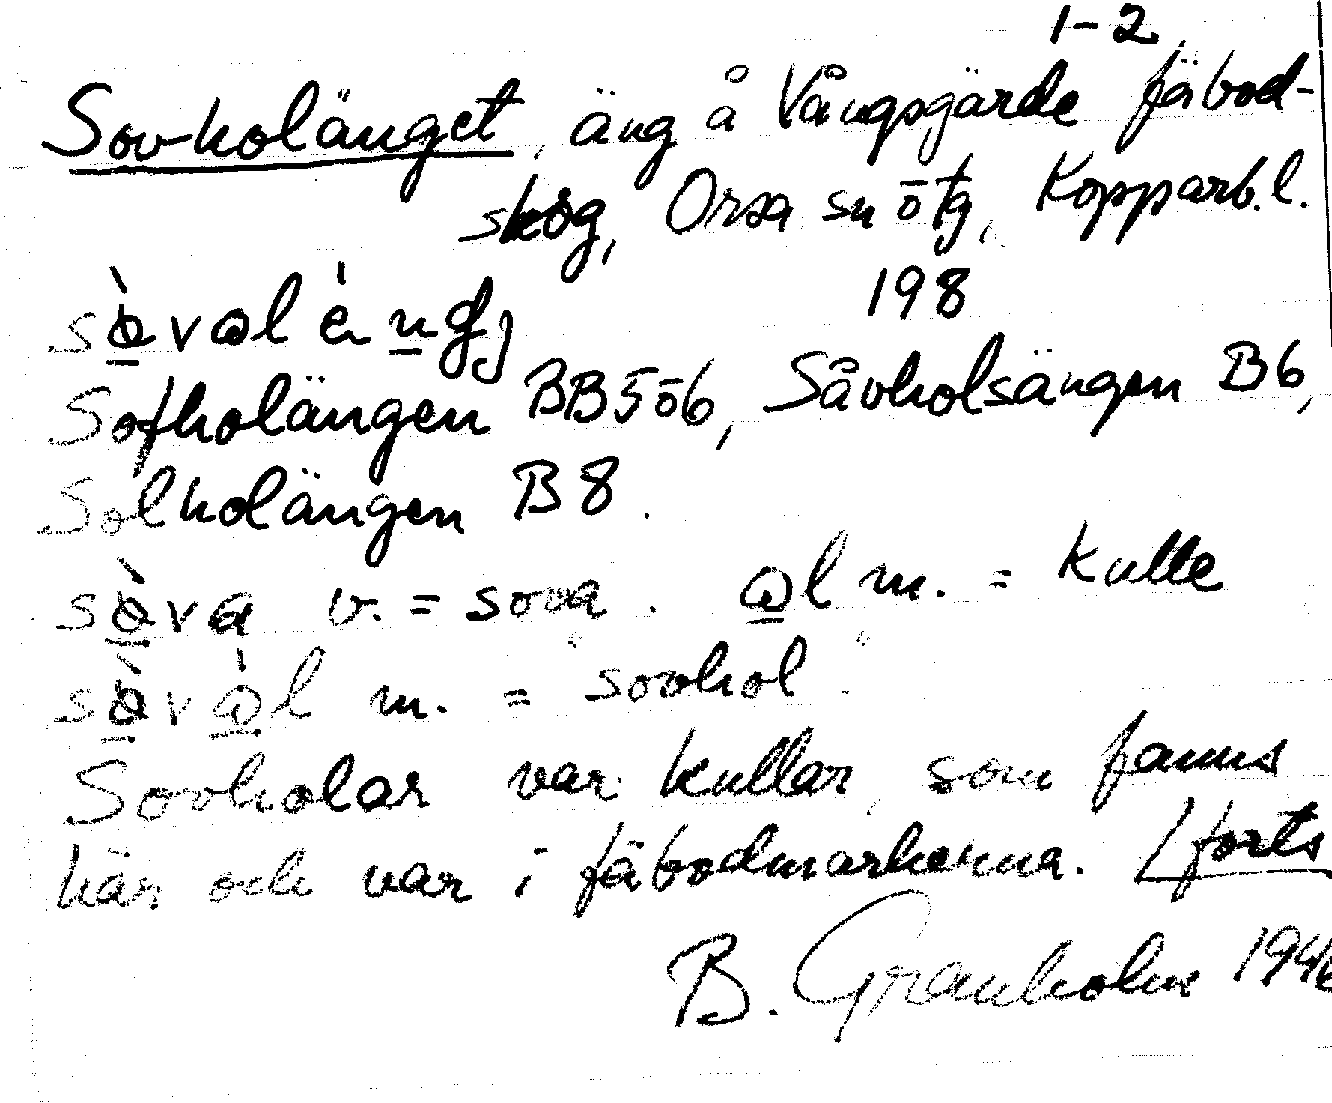 1-2
Sovholänget, äng å Vångsgärde fäbod-
skog, Orsa sn ō tg, Kopparb. l.
198
Sofholängen BB5ō6, Såvholsängen B6,
Solholängen B8.
v. = sova. m. = kulle
m. = "sovhol".
Sovholar var kullar, som fanns
här och var i fäbodmarkerna. /forts
B. Granholm